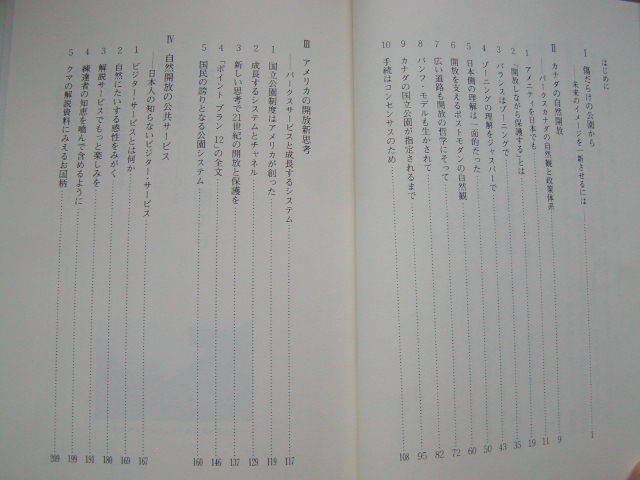 はじめに
I 傷だらけの公園から
――未来のイメージを一新させるには―― 1
II カナダの自然開放 9
――パークスカナダの自然観と政策体系
1 アメニティを日本でも 11
2 「開放しながら保護する」とは 19
3 バランスはゾーニングで 35
4 ゾーニングの理解をジャスパーで 43
5 日本側の理解は一面的だった 50
6 開放を支えるポストモダンの自然観 60
7 広い道路も開放の哲学にそって 72
8 バンフ・モデルも生かされて 82
9 カナダの国立公園が指定されるまで 95
10 手続はコンセンサスのため 108
III アメリカの開放新思考
――パークスサービスと成長するシステム 117
1 国立公園制度はアメリカが創った 119
2 成長するシステムとチャネル 129
3 新しい思考で21世紀の開放と保護を 137
4 「ポイント プラン 12」の全文 146
5 国民の誇りとなる公園システム 160
IV 自然開放の公共サービス
――日本人の知らないビジター・サービス 167
1 ビジター・サービスとは何か 169
2 自然にたいする感性をみがく 180
3 解説サービスでもっと楽しみを 191
4 練達者の知恵を噛んで含めるように 199
5 クマの解説資料にみえるお国柄 209